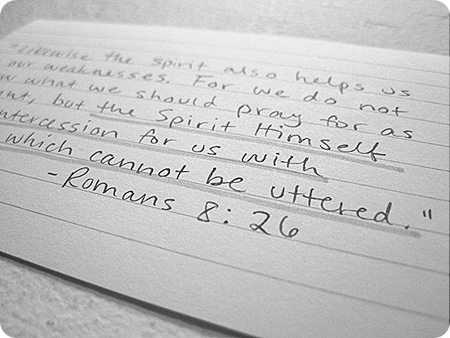 "Likewise the Spirit also helps us
our weaknesses. For we do not
what we should pray for as
but the Spirit Himself
ntercession for us with
which cannot be uttered."
-Romans 8:26